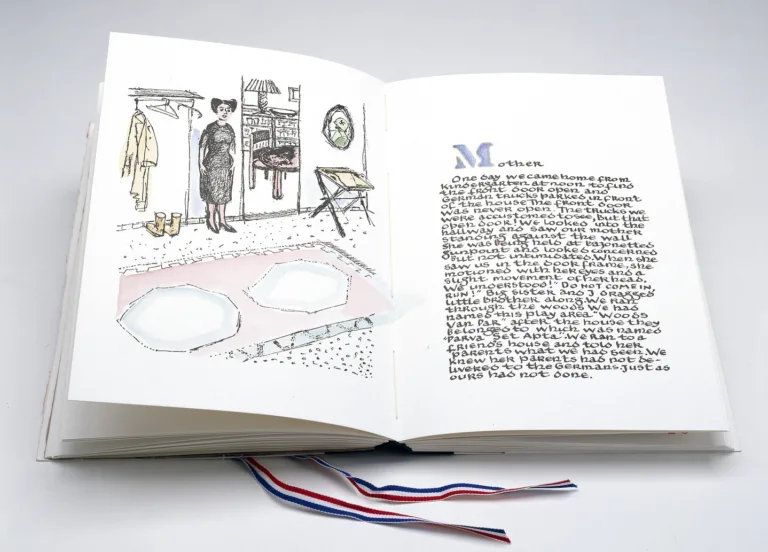 Mother
One day we came home from
kindergarten at noon to find
the front door open and
German trucks parked in front
of the house. The front door
was never open. The trucks we
were accustomed to see, but that
open door! We looked into the
hallway and saw our mother
standing against the wall
She was being held at bajonetted
gunpoint and looked concerned
but not intimidated. When she
saw us in the door frame, she
motioned with her eyes and a
slight movement of her head.
We understood! "Do not come in,
run!" Big sister and I dragged
little brother along. We ran
through the woods. We had
named this play area "Woods
Van Par" after the house they
belonged to which was named
"Parva Set Apta". We ran to a
friend's house and told her
parents what we had seen. We
knew her parents had not be-
livered to the Germans. Just as
ours had not done.